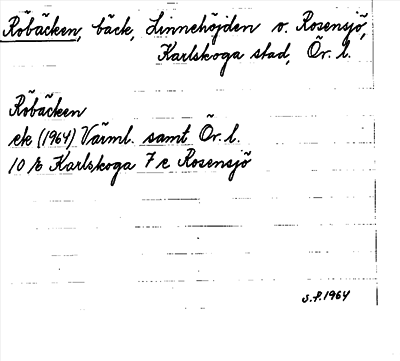 Röbäcken, bäck, Linnehöjden o. Rosensjö,
Karlskoga stad, Ör. l.
Röbäcken
ek (1964) Värml. samt Ör. l.
10 E Karlskoga 7 e Rosensjö
S.F. 1964